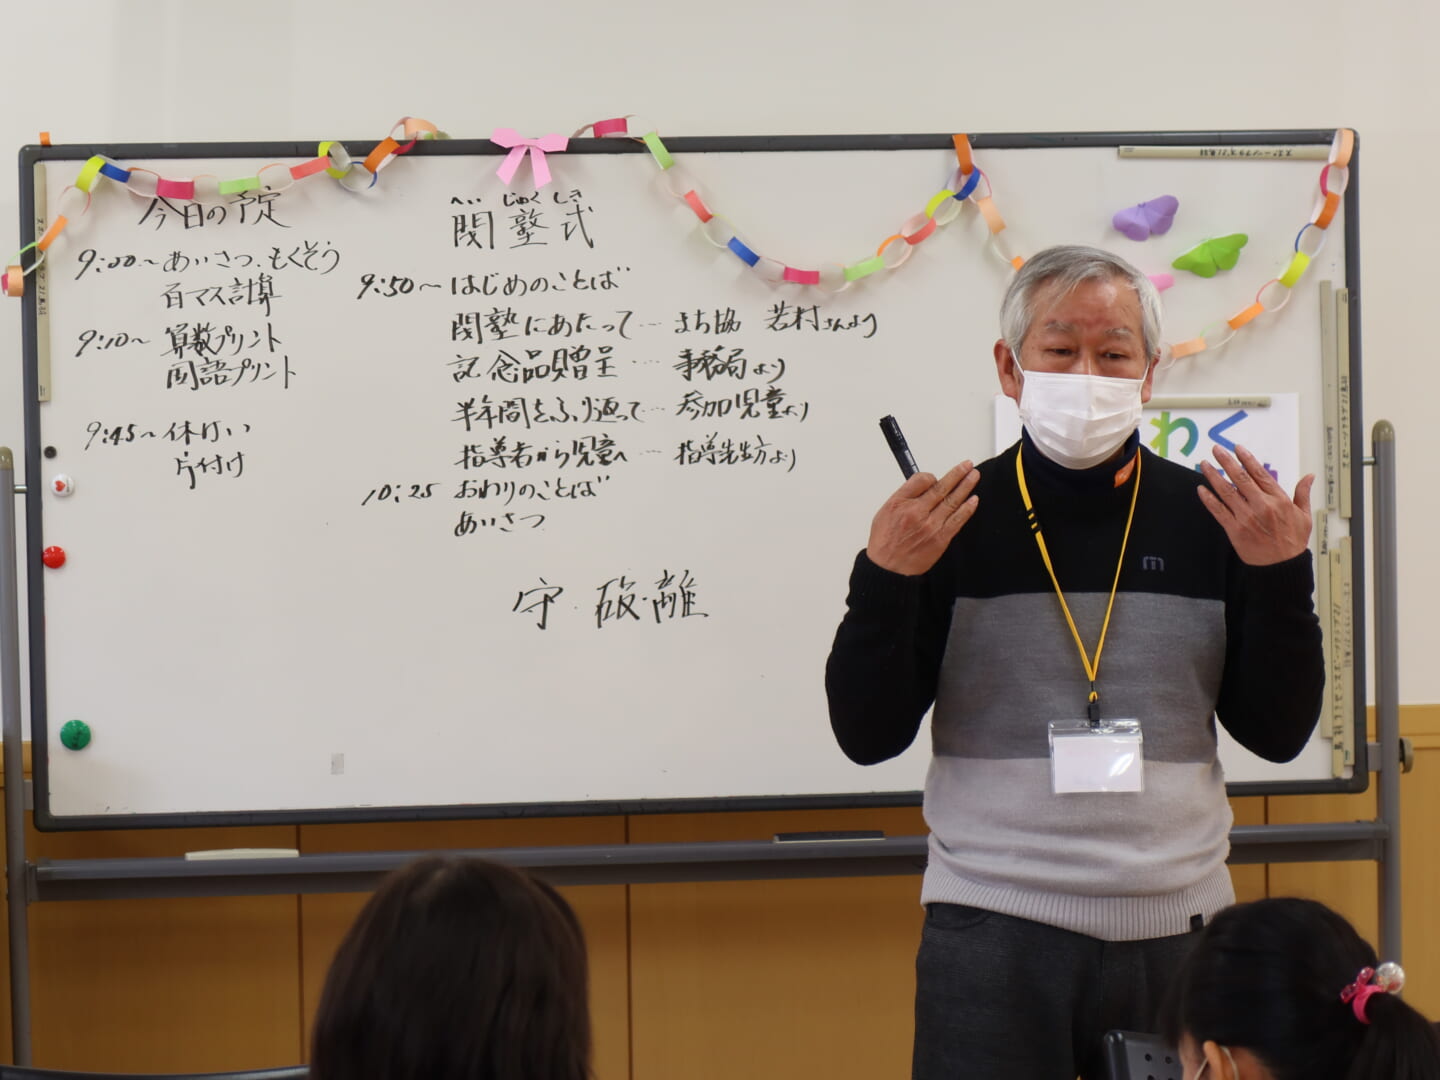 今日の予定
9:00～あいさつ、もくそう
百マス計算
9:10～算数プリント
国語プリント
9:45～休けい
片付け
へい じゅく しき
閉塾式
9:50～はじめのことば
閉塾にあたって…まち協 若村さんより
記念品贈呈…事務局より
半年間をふり返って…参加児童より
指導者から児童へ…指導先生方より
10:25 おわりのことば
あいさつ
守・破・離
わく